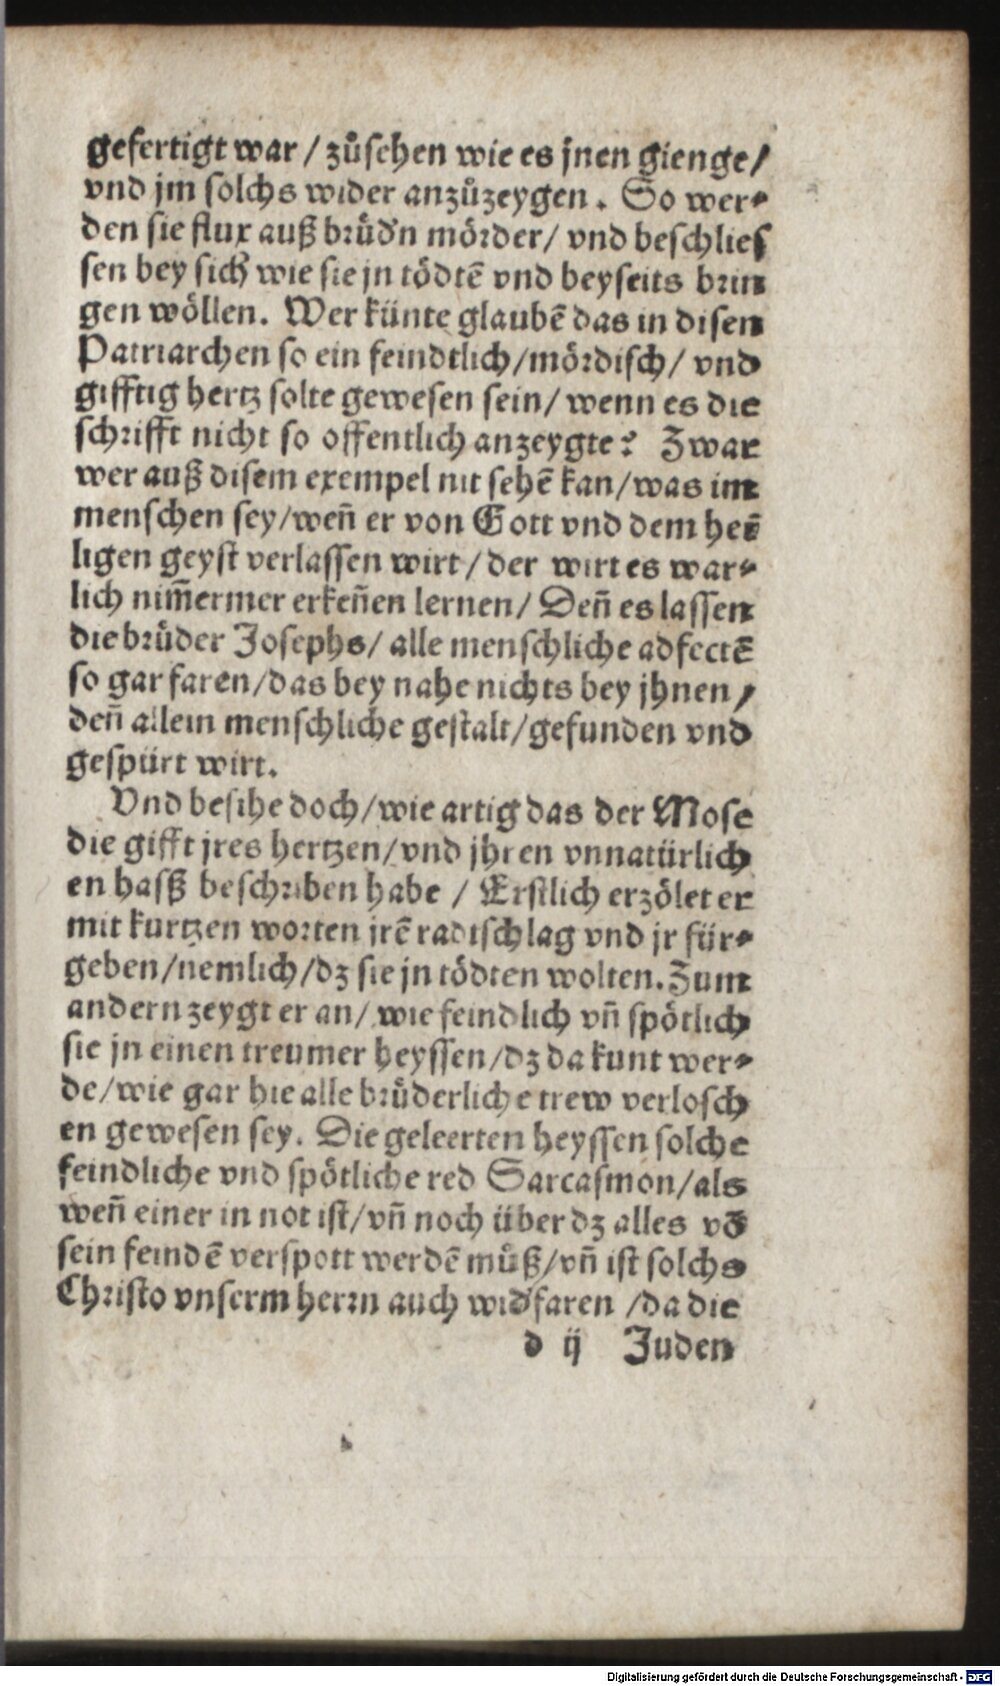 gefertigt war / zůsehen wie es jnen gienge /
vnd jm solchs wider anzůzeygen. So wer⸗
den sie flux auß brůd'n mörder / vnd beschlies
sen bey sich wie sie jn tödtē vnd beyseits brin
gen wöllen. Wer künte glaubē das in disen
Patriarchen so ein feindtlich / mördisch / vnd
gifftig hertz solte gewesen sein / wenn es die
schrifft nicht so offentlich anzeygte? Zwar
wer auß disem exempel nit sehē kan / was im
menschen sey / weñ er von Gott vnd dem hei
ligen geyst verlassen wirt / der wirt es war⸗
lich nim̄ermer erkeñen lernen / Deñ es lassen
die brůder Josephs / alle menschliche adfectē
so gar faren / das bey nahe nichts bey jhnen /
deñ allein menschliche gestalt / gefunden vnd
gespürt wirt.
Vnd besihe doch / wie artig das der Mose
die gifft jres hertzen / vnd jhren vnnatürlich
en hasß beschriben habe / Erstlich erzölet er
mit kurtzen worten jrē radtschlag vnd jr für⸗
geben / nemlich / dz sie jn tödten wolten. Zum
andern zeygt er an / wie feindlich vñ spötlich
sie jn einen treumer heyssen / dz da kunt wer⸗
de / wie gar hie alle brůderliche trew verlosch
en gewesen sey. Die geleerten heyssen solche
feindliche vnd spötliche red Sarcasmon / als
weñ einer in not ist / vñ noch über dz alles vō
sein feindē verspott werdē můß / vñ ist solchs
Christo vnserm herrn auch wid'faren / da die
d ij Juden
Digitalisierung gefördert durch die Deutsche Forschungsgemeinschaft - DFG